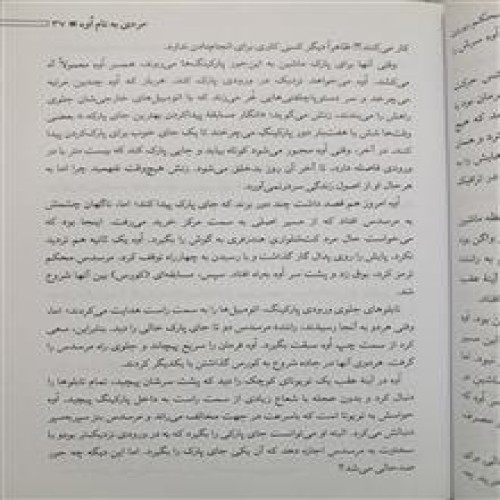 مردی به نام اُوه ■ ۳۷
کار می‌کنند؟! ظاهراً دیگر کسی کاری برای انجام‌دادن ندارد.
وقتی آنها برای پارک ماشین به این‌جور پارکینگ‌ها می‌روند، همسر اُوه معمولاً آه
می‌کشد. اُوه می‌خواهد نزدیک در ورودی پارک کند. هربار که اُوه چندین مرتبه
می‌چرخد و سر دست‌وپاچلفتی‌هایی غُر می‌زند که با اتومبیل‌های خارجی‌شان جلوی
راهش را می‌بندند، زنش می‌گوید: «انگار مسابقهٔ پیداکردن بهترین جای پارکه.» بعضی
وقت‌ها شش یا هفت‌بار دور پارکینگ می‌چرخند تا یک جای خوب برای پارک‌کردن پیدا
کنند. در آخر، وقتی اُوه مجبور می‌شود کوتاه بیاید و جایی پارک کند که بیست متر با در
ورودی فاصله دارد، تا آخر آن روز بدخلق می‌شود. زنش هیچ‌وقت نفهمید چرا اما به
هرحال او از اصول زندگی سردرنمی‌آورد.
اُوه امروز هم قصد داشت چند دور بزند که جای پارک پیدا کند؛ اما، ناگهان چشمش
به مرسدس افتاد که از مسیر اصلی به سمت مرکز خرید می‌رفت. اینجا بود که
می‌خواست حال مرد کت‌شلواری هندزفری به گوش را بگیرد. اُوه یک ثانیه هم تردید
نکرد. پایش را روی پدال گاز گذاشت و با رسیدن به چهارراه توقف کرد. مرسدس محکم
ترمز کرد، بوق زد و پشت سر اُوه به‌راه افتاد. سپس، مسابقه‌ای (کورس) بین آنها شروع
شد.
تابلوهای جلوی ورودی پارکینگ، اتومبیل‌ها را به سمت راست هدایت می‌کردند؛ اما،
وقتی هردو به آنجا رسیدند، رانندهٔ مرسدس دو تا جای پارک خالی را دید. بنابراین، سعی
کرد از سمت چپ اُوه سبقت بگیرد. اُوه فرمان را سریع پیچاند و جلوی راه مرسدس را
گرفت. هردوی آنها در جاده شروع به کورس گذاشتن با یکدیگر کردند.
اُوه در آینهٔ عقب یک تویوتای کوچک را دید که پشت سرشان پیچید، تمام تابلوها را
دنبال کرد و بدون عجله با شعاع زیادی از سمت راست به داخل پارکینگ پیچید. اُوه
حواسش به تویوتا است که باسرعت در جهت مخالف می‌راند و مرسدس بنز سپربه‌سپر
دنبالش می‌کرد. البته او می‌توانست جای پارکی را بگیرد که به در ورودی نزدیک‌تر بود و با
سخاوت به مرسدس اجازه دهد که آن یکی جای پارک را بگیرد. اما این دیگه چه جور
ضدحالی می‌شد؟